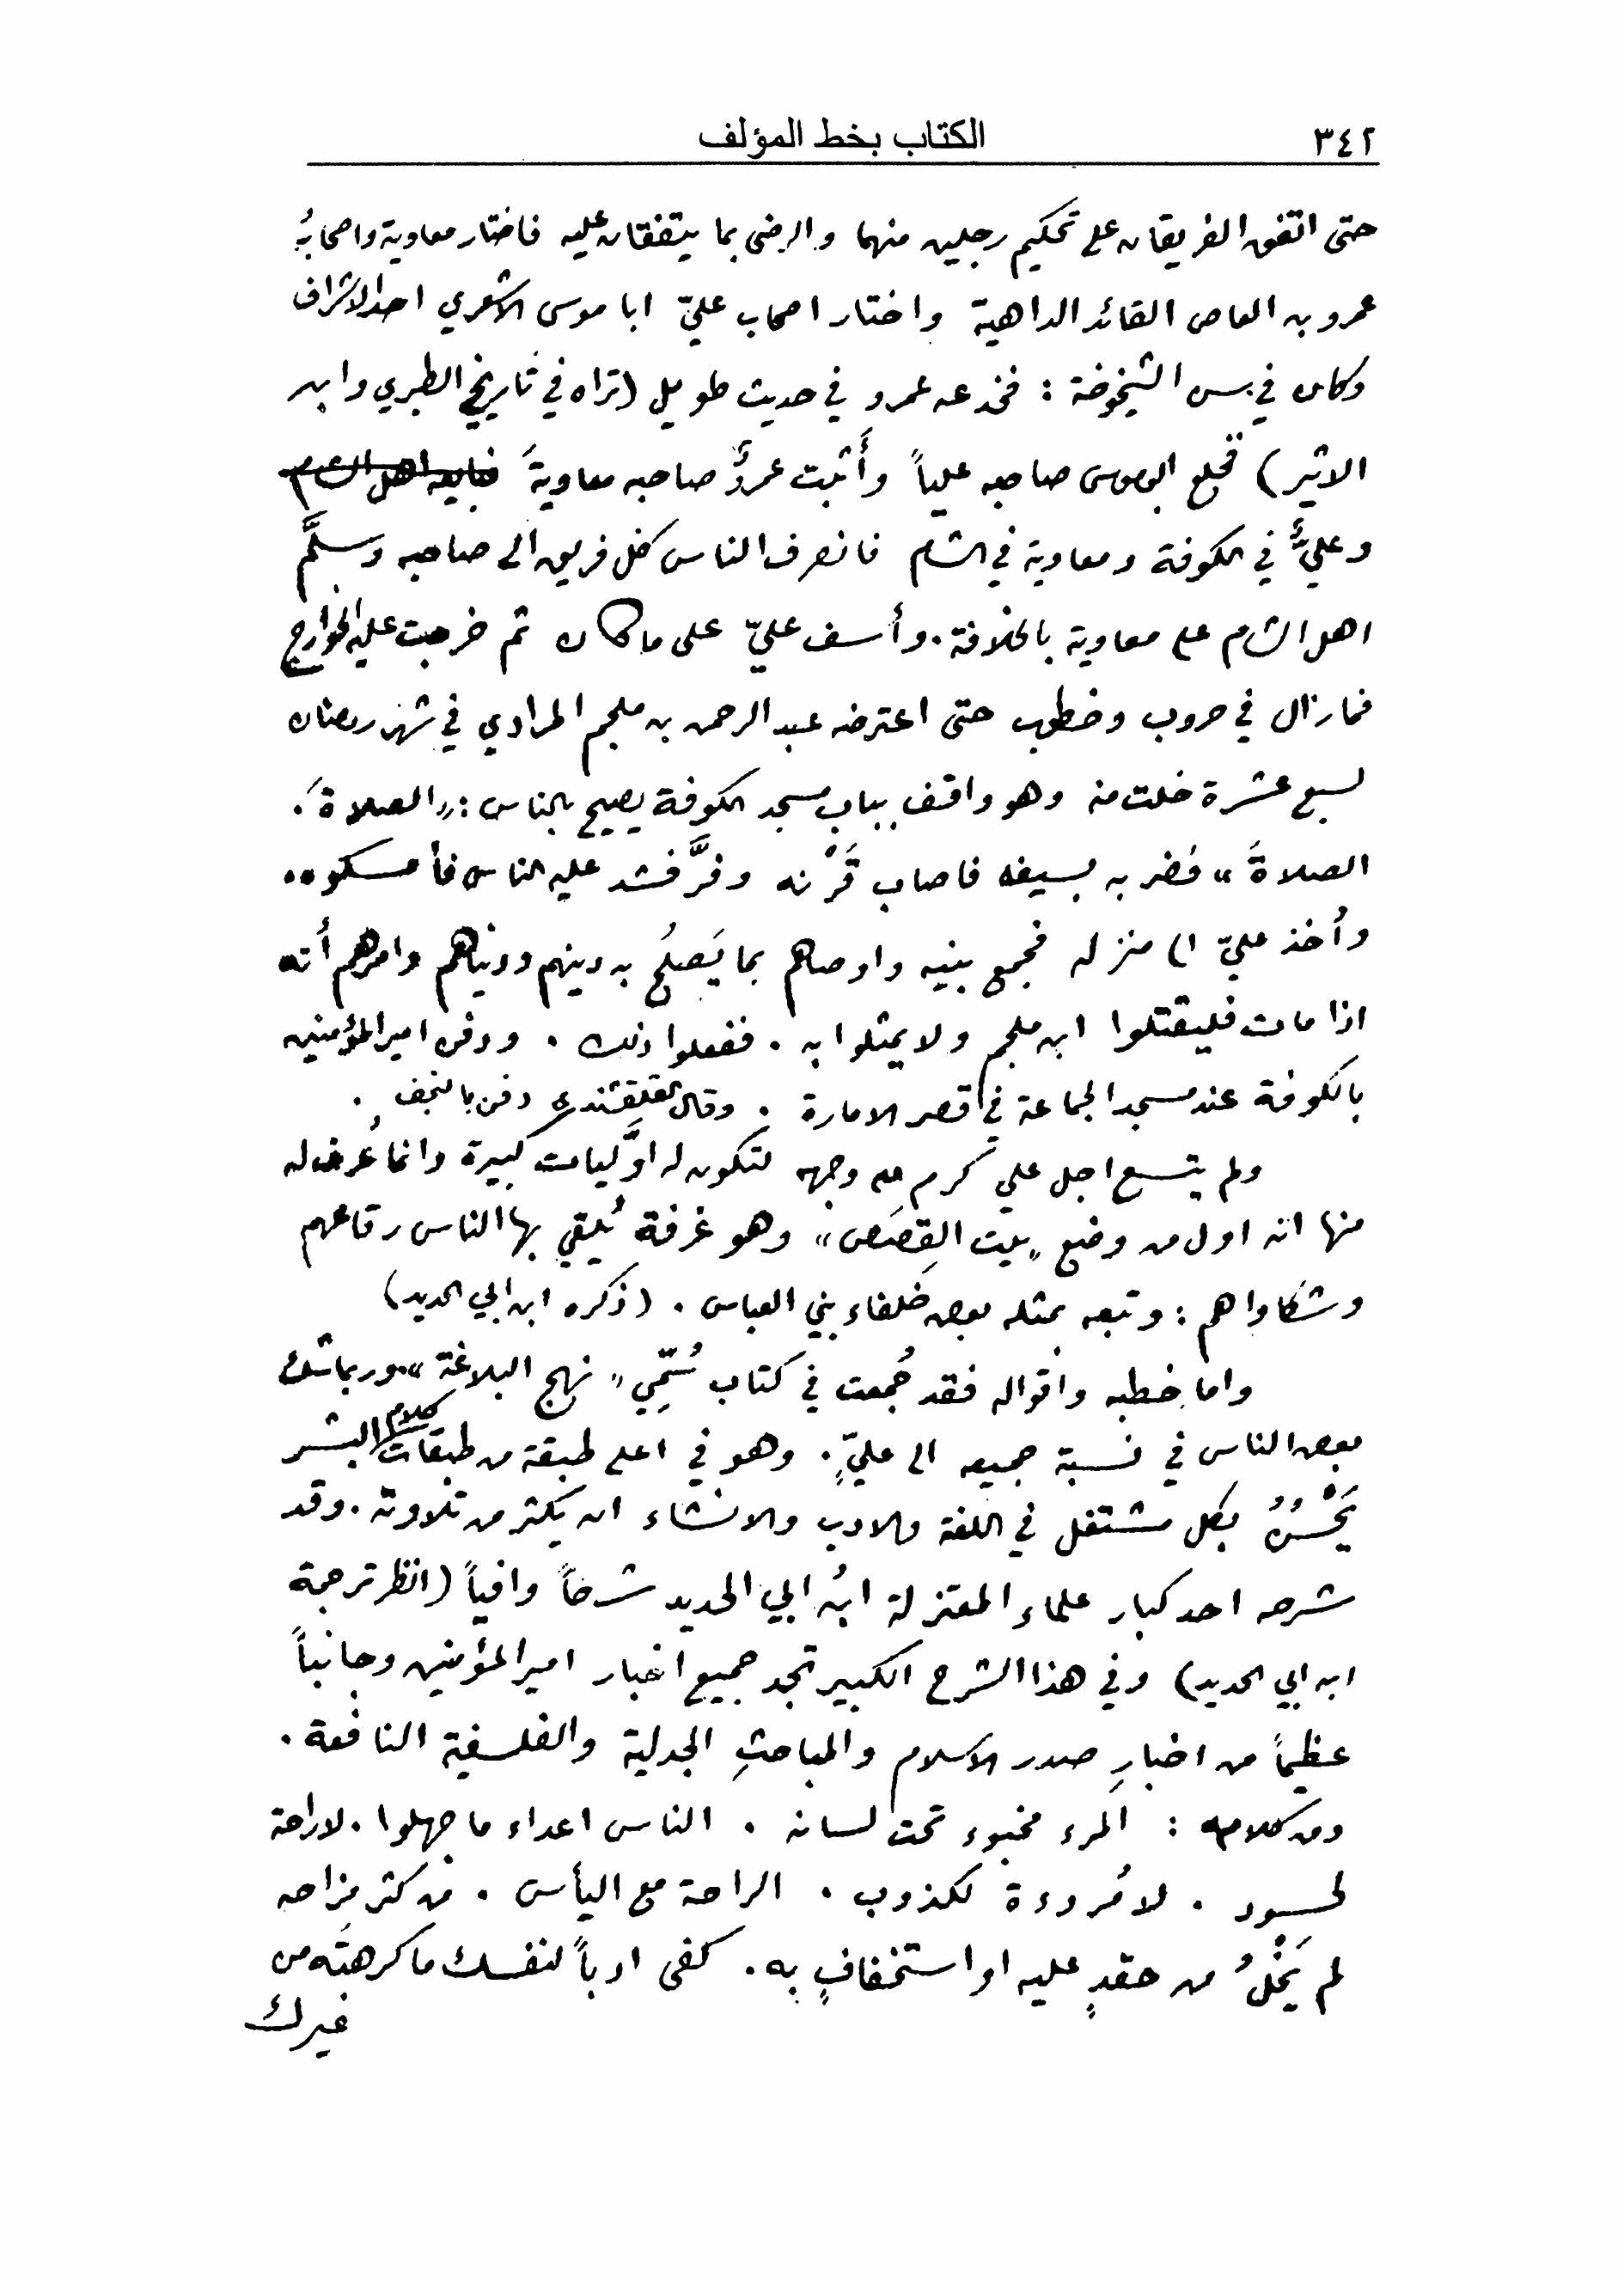 ٣٤٢ الكتاب بخط المؤلف
حتى اتفق الفريقان على تحكيم رجلين منهما والرضى بما يتفقان عليه فاختار معاوية واصحابُه
عمرو بن العاص القائد الداهية واختار اصحاب عليّ ابا موسى الاشعري احد الاشراف
وكان في سن الشيخوخة : فخدعه عمرو في حديث طويل (تراه في تاريخي الطبري وابن
الاثير) فخلع ابوموسى صاحبه علياً وأَثبت عمروٌ صاحبه معاويةَ فبايعه اهل الشام
وعليٌّ في الكوفة ومعاوية في الشام فانصرف الناس كل فريق الى صاحبه وسلَّم
اهل الشام على معاوية بالخلافة . وأسف عليّ على ما كان ثم خرجت عليه الخوارج
فما زال في حروب وخطوب حتى اعترضه عبد الرحمن بن ملجم المرادي في شهر رمضان
لسبع عشرة خلت منه وهو واقف بباب مسجد الكوفة يصيح بالناس : „الصلاةَ .
الصلاةَ “ فضربه بسيفه فاصاب قَرْنه وفرَّ فشد عليه الناس فأمسكوه .
وأُخذ عليّ الى منزله فجمع بنيه واوصاهم بما يَصلُح به دينهم ودنياهم وامرهم أنه
اذا مات فليقتلوا ابن ملجم ولا يمثلوا به . ففعلوا ذلك . ودفن امير المؤمنين
بالكوفة عند مسجد الجماعة في قصر الامارة . وقال القلقشندي دفن بالنجف .
ولم يتسع اجل علي كرم الله وجهه لتكون له اوَّليات كبيرة وانما عُرف له
منها انه اول من وضع „بيت القِصَص“ وهو غرفة يُلقي بها الناس رقاعهم
وشكاواهم : وتبعه بمثله بعض خلفاء بني العباس . (ذكره ابن ابي الحديد)
واما خطبه واقواله فقد جُمعت في كتاب سُمّي „نهج البلاغة“ . وربما شك
بعض الناس في نسبة جميعه الى عليٍّ . وهو في اعلى طبقة من طبقات كلام البشر
يَحْسُنُ بكل مشتغل في اللغة والادب والانشاء ان يكثر من تلاوته . وقد
شرحه احد كبار علماء المعتزلة ابنُ ابي الحديد شرحاً وافياً (انظر ترجمة
ابن ابي الحديد) وفي هذا الشرح الكبير تجد جميع اخبار امير المؤمنين وجانباً
عظيماً من اخبارِ صدر الاسلام والمباحثِ الجدلية والفلسفية النافعة .
ومن كلامه : المرء مخبوء تحت لسانه . الناس اعداء ما جهلوا . لا راحة
لحسود . لا مُروءة لكذوب . الراحة مع اليأس . من كثر مزاحه
لم يَخْلُ من حقدٍ عليه او استخفافٍ به . كفى ادباً لنفسك ما كرهتَه من
غيرك